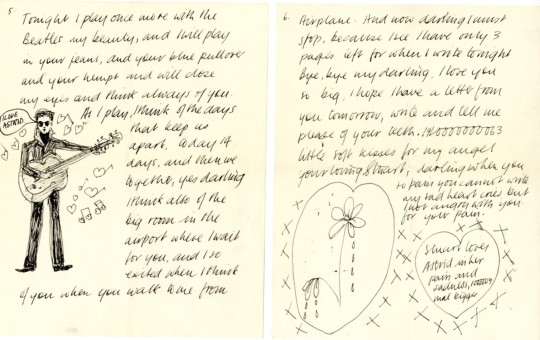 5
Tonight I play once more with the
Beatles my beauty, and I will play
in your jeans, and your blue pullover
and your and will close
my eyes and think always of you.
As I play, I think of the days
that keep us
apart, today 14
days, and then we
together, yes darling
I think also of the
big room in the
airport where I wait
for you, and I so
excited when I think
of you when you walk to me from
I LOVE
ASTRID
6.
Airplane. And now darling I must
stop, because I see I have only 3
pages left for when I write tonight
Bye, bye my darling. I love you
so big, I hope I have a letter from
you tomorrow, write and tell me
please of your teeth.
little soft kisses for my angel
your loving Stuart, darling when you
so pain you cannot write
my sad heart cries but
I not angry with you
for your pain.
Stuart loves
Astrid in her
pain and
sadness,
mal bigger